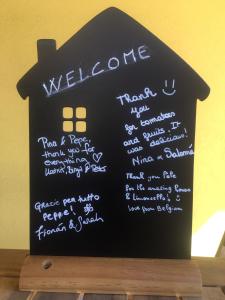 WELCOME
Pina & Pepe,
thank you for
everything
Thank
you
for tomatoes
and fruits. It
was delicious!
Nina & Salomé
Thank you Pepe
for the amazing
& limoncello's
love from Belgium
Grazie per tutto
Peppe!
& Sarah